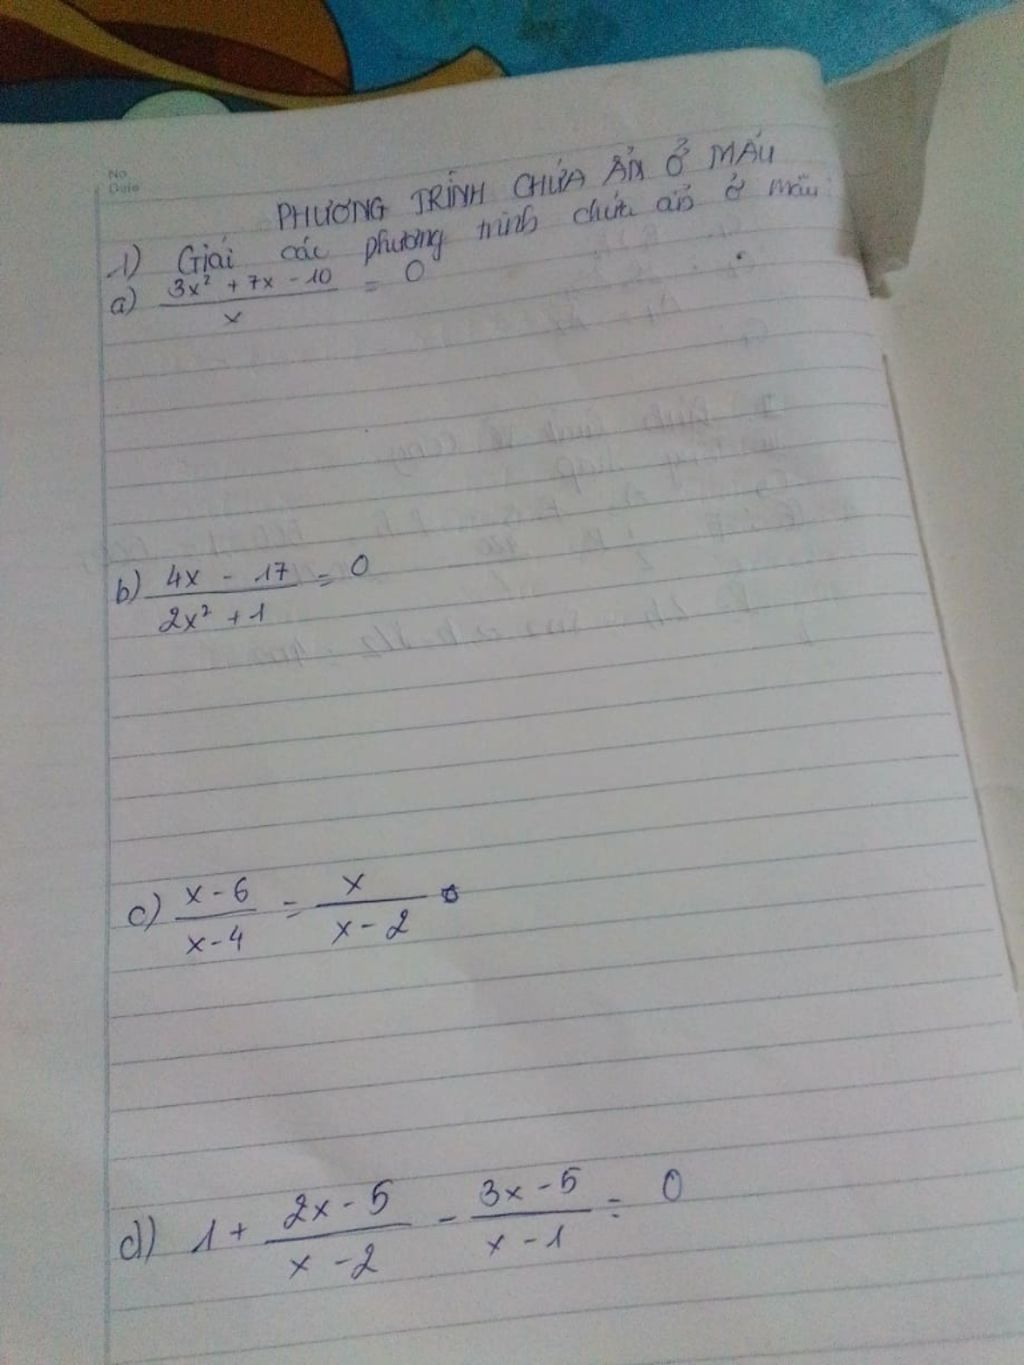 No
Date
PHƯƠNG TRÌNH CHỨA ẨN Ở MẪU
1) Giải các phương trình chứa ẩn ở mẫu:
a) (3x² + 7x - 10)/x = 0
b) (4x - 17)/(2x² + 1) = 0
c) (x - 6)/(x - 4) = x/(x - 2)
d) 1 + (2x - 5)/(x - 2) - (3x - 5)/(x - 1) = 0